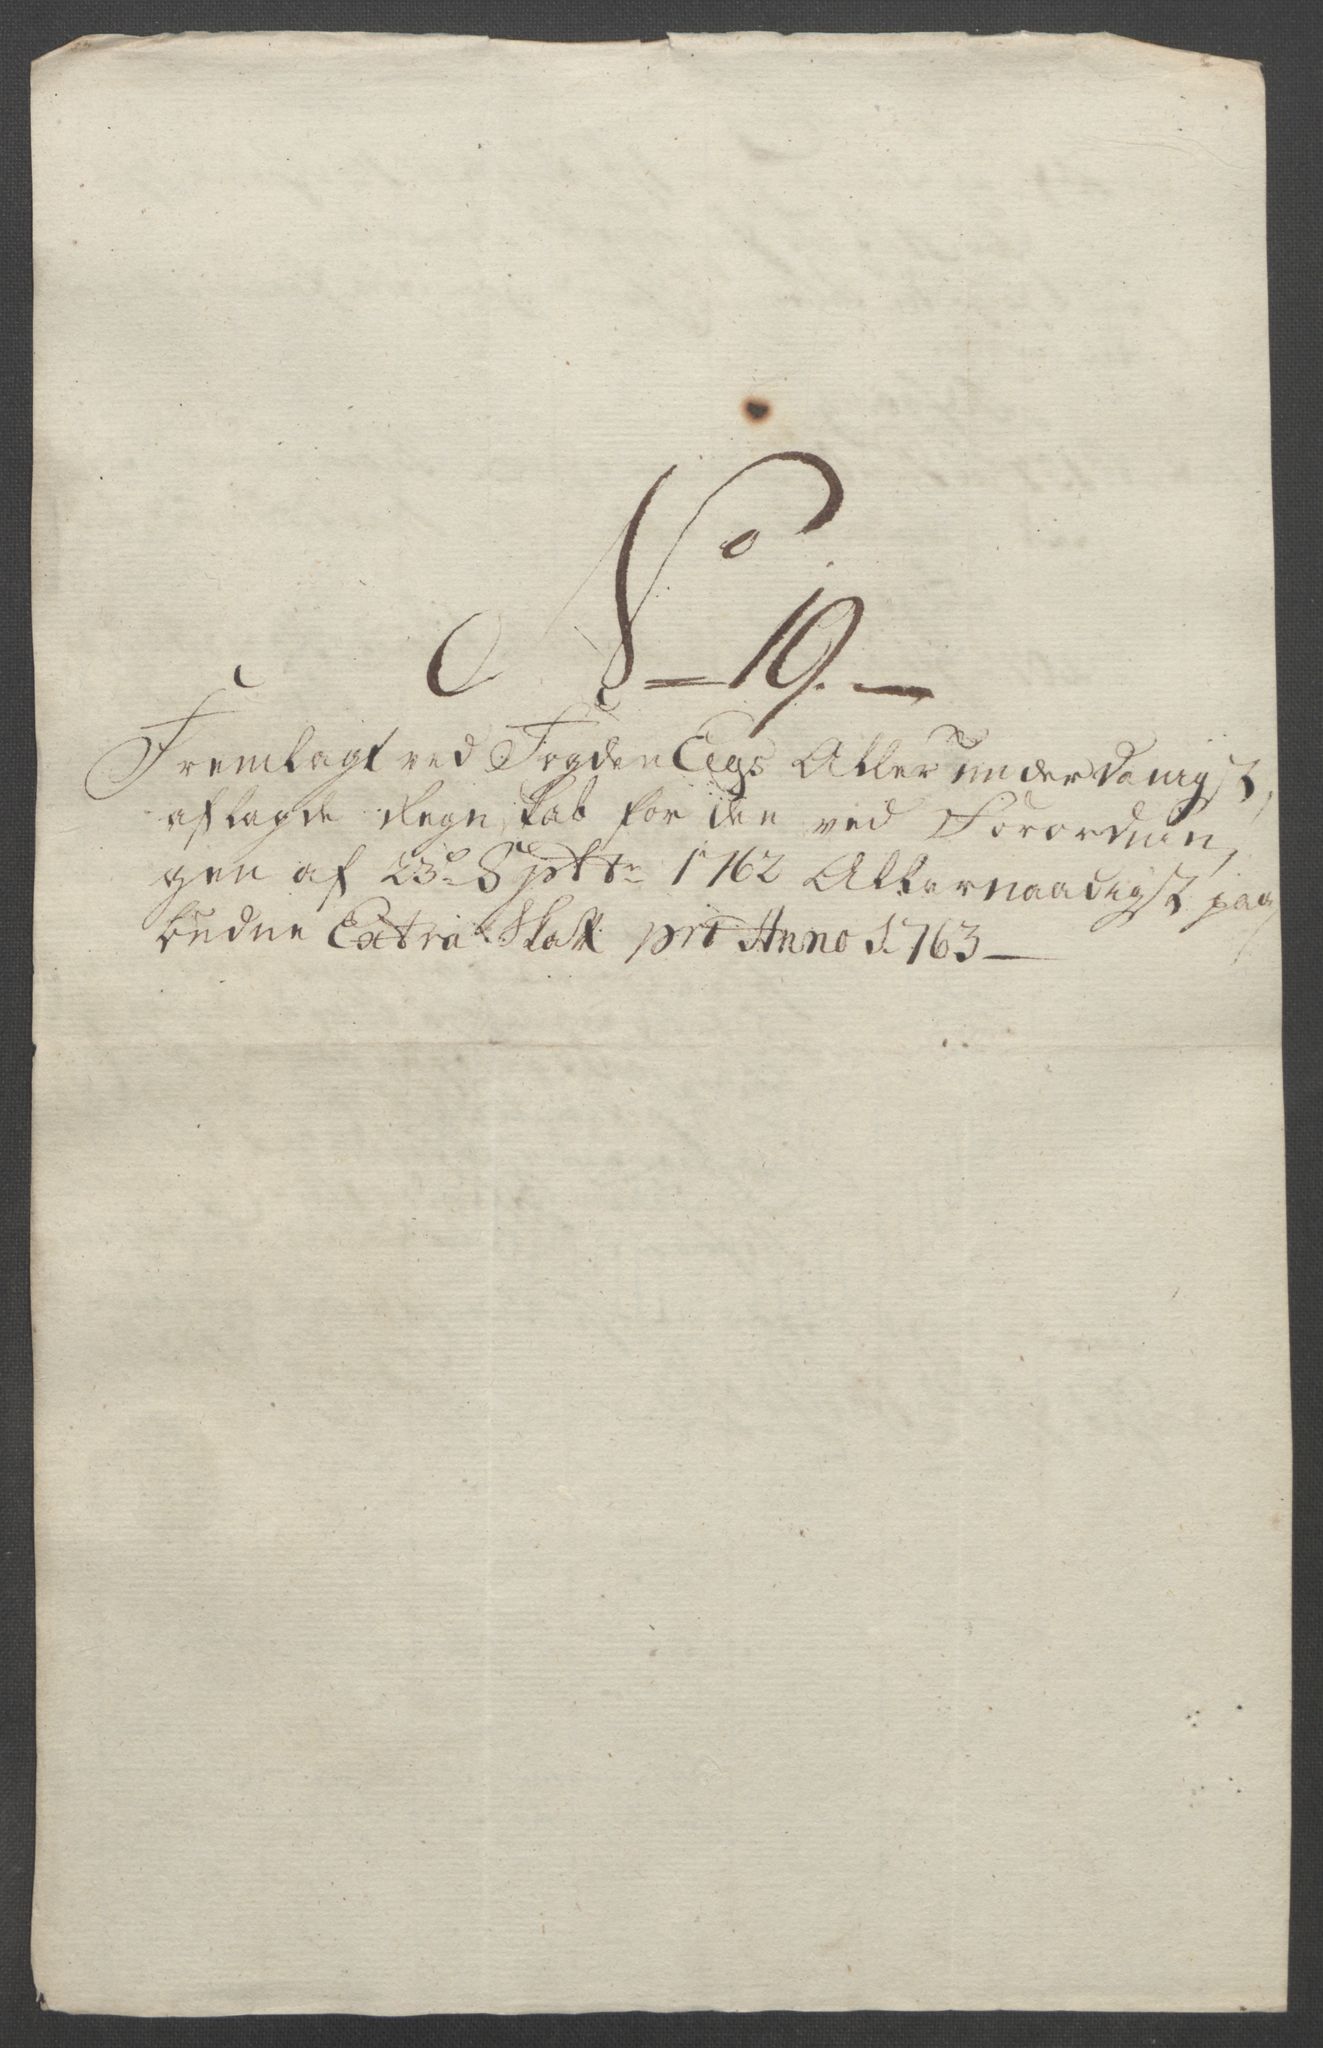 No 19.
Fremlagt ved Fogden Eegs Aller underdanigst
aflagde Regnskab for den ved Forordnin,
gen af 23de Sptbr 1762 Allernaadigst paa,
budne Extra Skatt pro Anno 1763